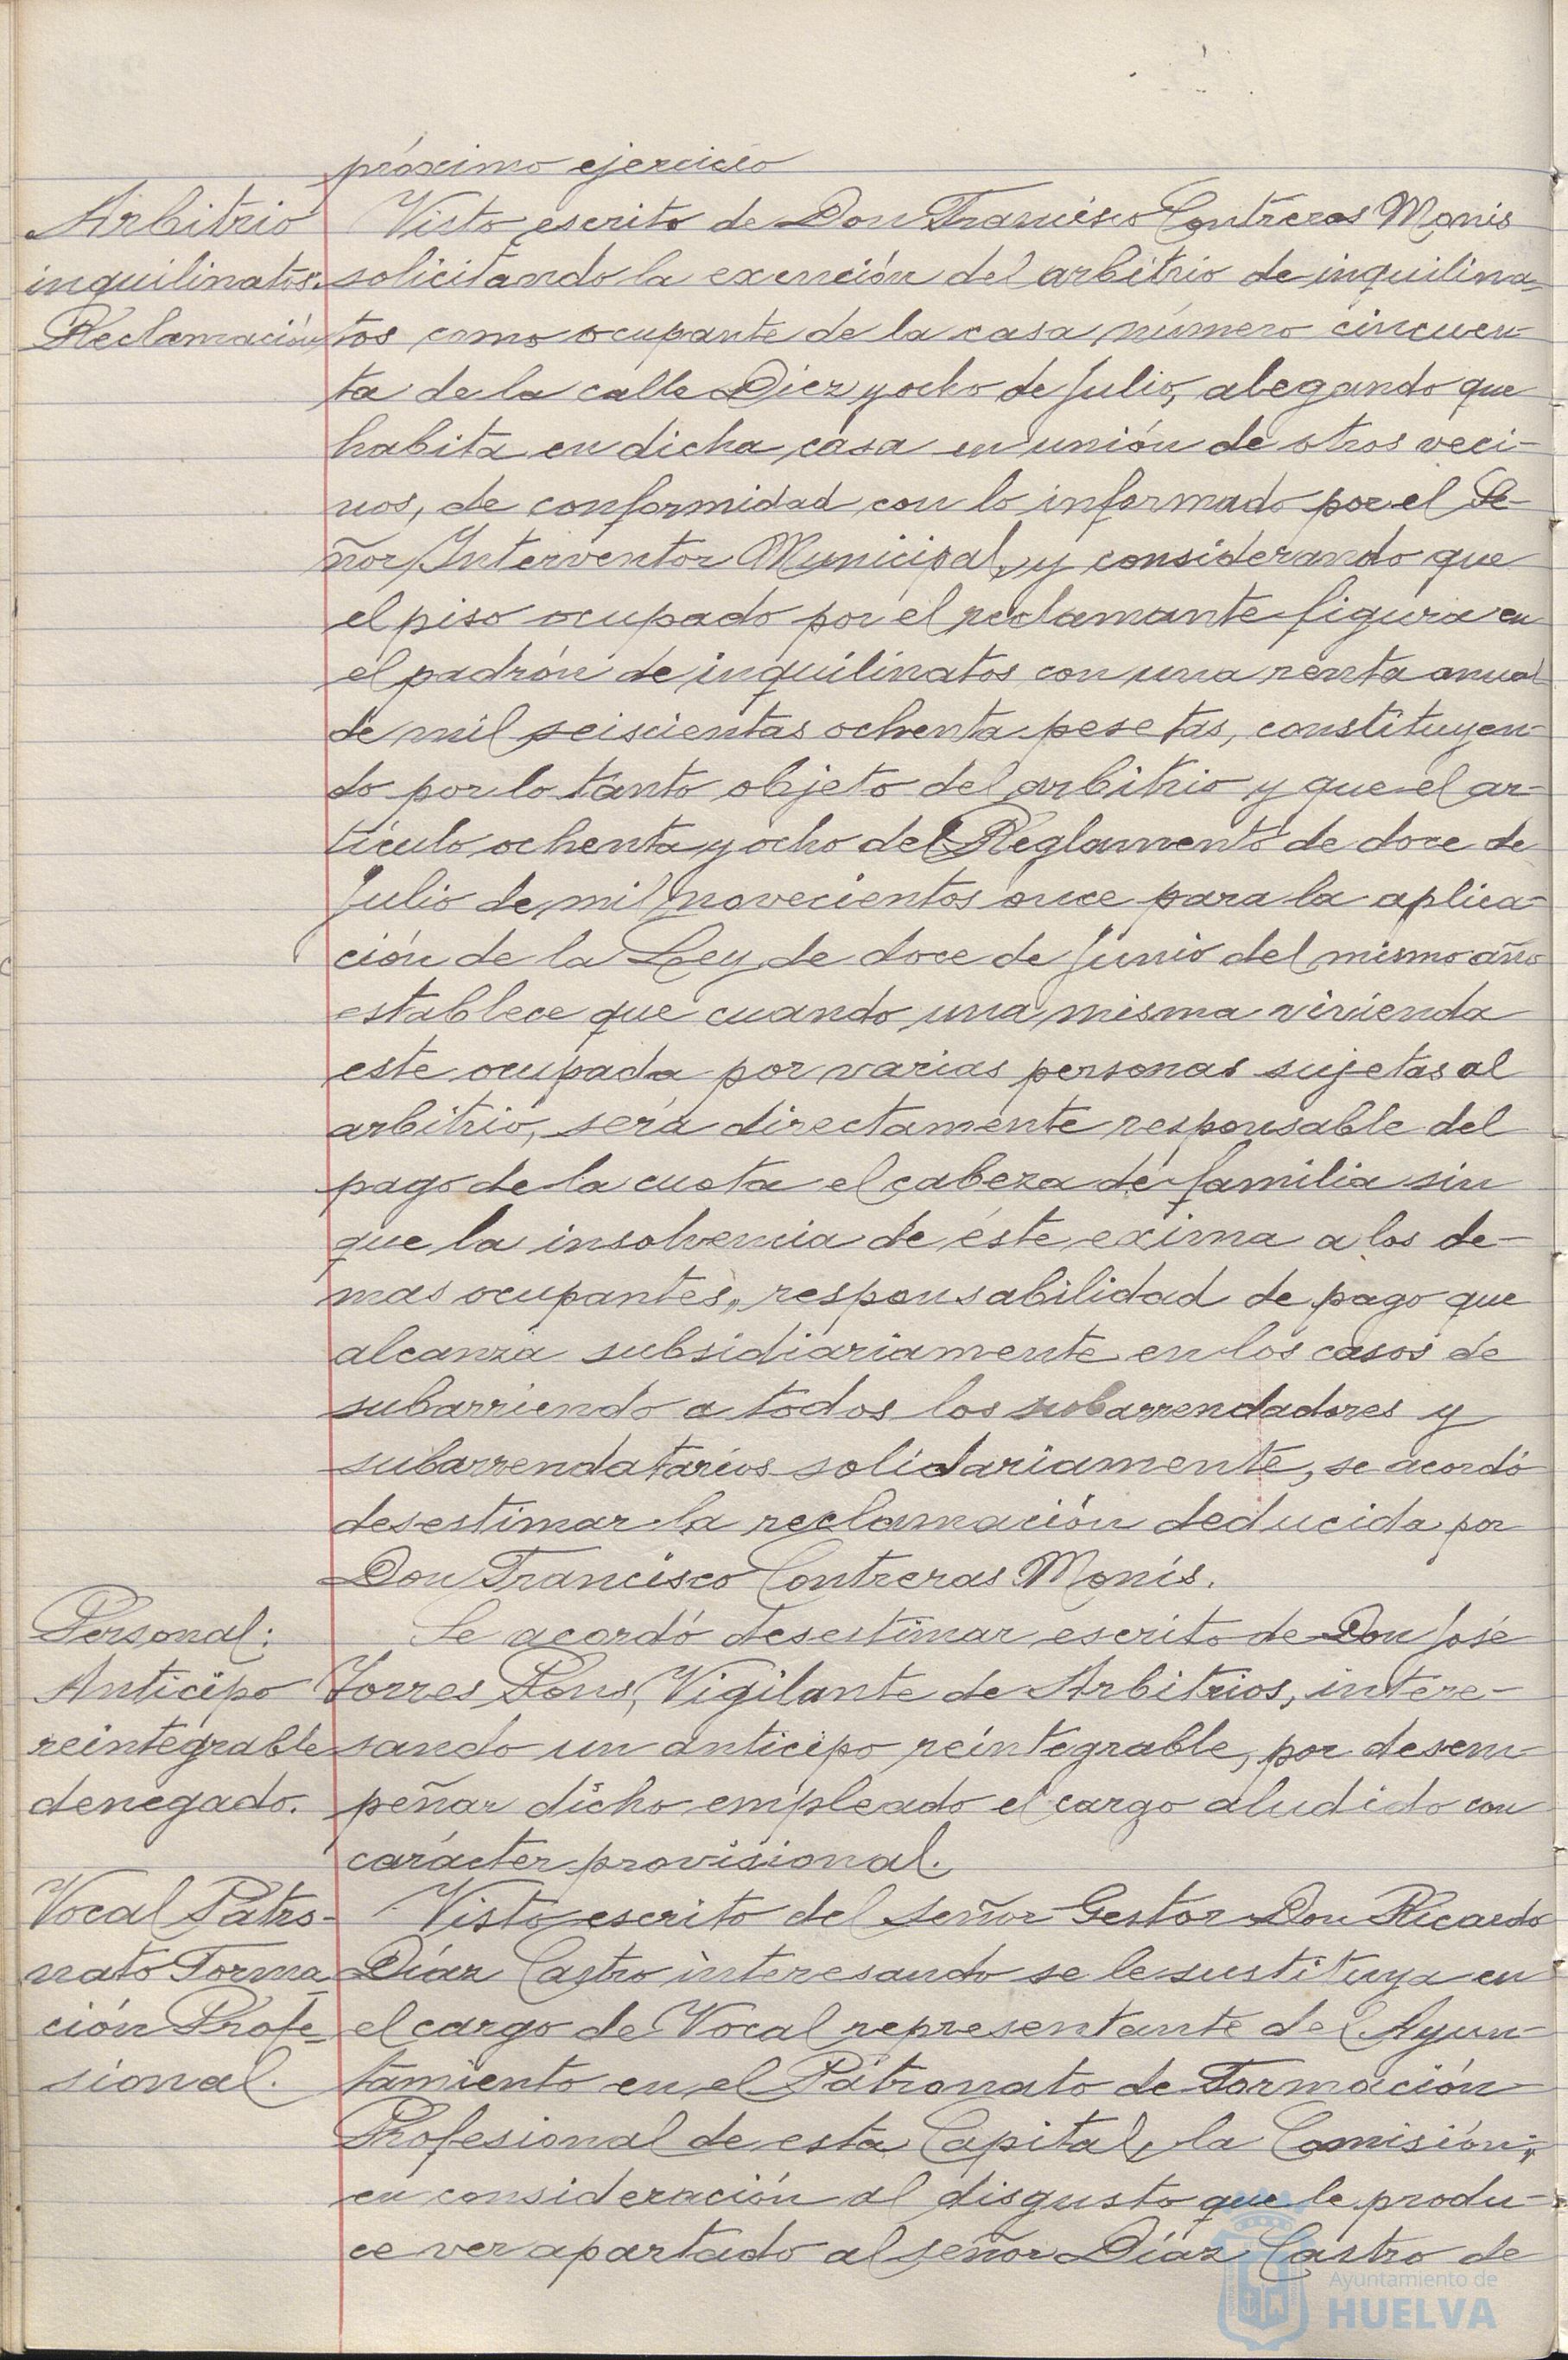 próximo ejercicio
Arbitrio
inquilinatos.
Reclamación
Visto escrito de Don Francisco Contreras Monis
solicitando la exención del arbitrio de inquilina-
tos como ocupante de la casa número cincuen-
ta de la calle Diez y ocho de Julio, alegando que
habita en dicha casa en unión de otros veci-
nos, de conformidad con lo informado por el Se-
ñor Interventor Municipal, y considerando que
el piso ocupado por el reclamante figura en
el padrón de inquilinatos con una renta anual
de mil seiscientas ochenta pesetas, constituyen-
do por lo tanto objeto del arbitrio y que el ar-
tículo ochenta y ocho del Reglamento de doce de
Julio de mil novecientos once para la aplica-
ción de la Ley de doce de Junio del mismo año
establece que cuando una misma vivienda
este ocupada por varias personas sujetas al
arbitrio, será directamente responsable del
pago de la cuota el cabeza de familia sin
que la insolvencia de éste exima a los de-
mas ocupantes, responsabilidad de pago que
alcanza subsidiariamente en los casos de
subarriendo a todos los subarrendadores y
subarrendatarios solidariamente, se acordó
desestimar la reclamación deducida por
Don Francisco Contreras Monís.
Personal:
Anticipo
reintegrable
denegado.
Se acordó desestimar escrito de Don José
Torres Pons, Vigilante de Arbitrios, intere-
sando un anticipo reintegrable, por desem-
peñar dicho empleado el cargo aludido con
carácter provisional.
Vocal Patro-
nato Forma-
ción Profe-
sional.
Visto escrito del Señor Gestor Don Ricardo
Díaz Castro interesando se le sustituya en
el cargo de Vocal representante del Ayun-
tamiento en el Patronato de Formación
Profesional de esta Capital, la Comisión,
en consideración al disgusto que le produ-
ce ver apartado al señor Díaz Castro de
Ayuntamiento de
HUELVA